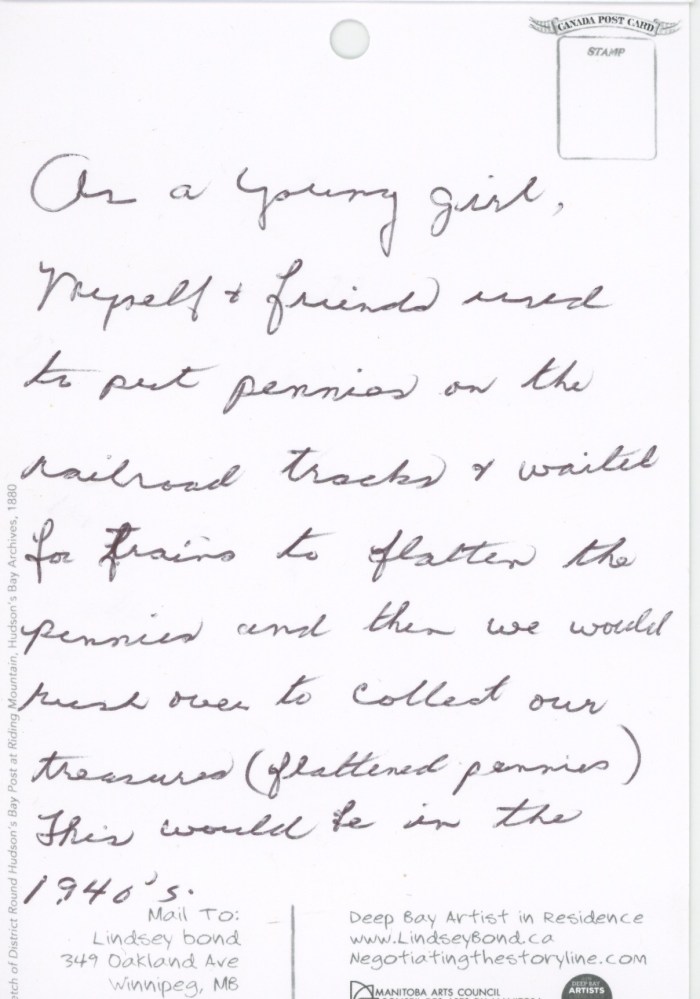 CANADA POST CARD
STAMP
As a young girl,
Myself & friends used
to put pennies on the
railroad tracks & waited
for trains to flatten the
pennies and then we would
rush over to collect our
treasures (flattened pennies)
This would be in the
1940's.
etch of District Round Hudson's Bay Post at Riding Mountain, Hudson's Bay Archives, 1880
Mail To:
Lindsey bond
349 Oakland Ave
Winnipeg, MB
Deep Bay Artist in Residence
www.LindseyBond.ca
Negotiatingthestoryline.com
MANITOBA ARTS COUNCIL
DEEP BAY
ARTISTS